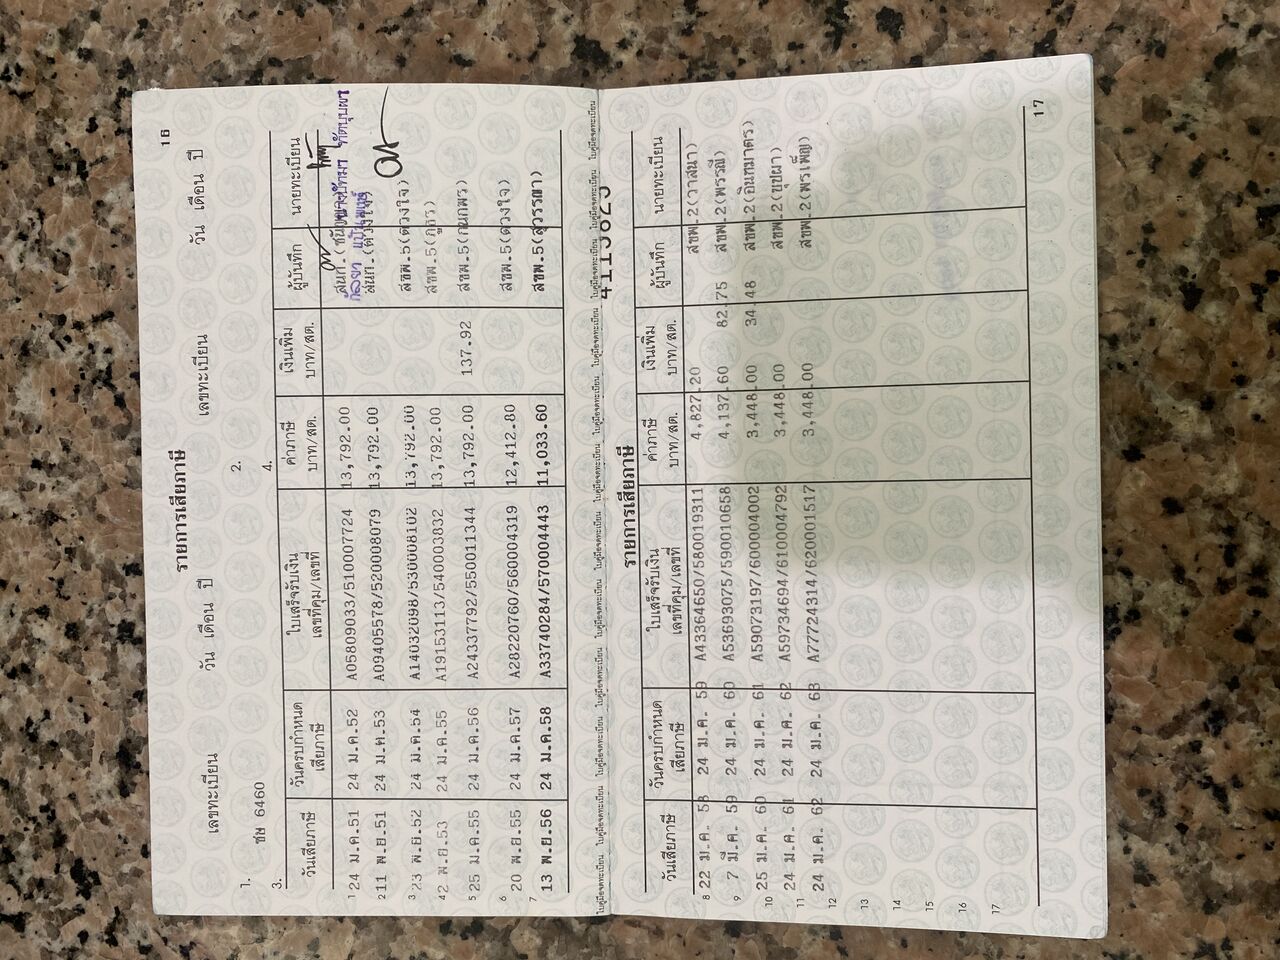 16
รายการเสียภาษี
เลขทะเบียน วัน เดือน ปี เลขทะเบียน วัน เดือน ปี
1. ชษ 6460 2.
3. 4.
วันเสียภาษี วันครบกำหนดเสียภาษี ใบเสร็จรับเงิน เลขที่คุม/เลขที่ ค่าภาษี บาท/สต. เงินเพิ่ม บาท/สต. ผู้บันทึก นายทะเบียน
1 24 ม.ค.51 24 ม.ค.52 A05809033/510007724 13,792.00 สนก.
2 11 พ.ย.51 24 ม.ค.53 A09405578/520008079 13,792.00 สนก.(ดวงใจ)
3 23 พ.ย.52 24 ม.ค.54 A14032098/530008102 13,792.00 สขพ.5(ดวงใจ)
4 2 พ.ย.53 24 ม.ค.55 A19153113/540003832 13,792.00 สขพ.5(ภูธร)
5 25 ม.ค.55 24 ม.ค.56 A24337792/550011344 13,792.00 137.92 สขพ.5(กนกพร)
6 20 พ.ย.55 24 ม.ค.57 A28220760/560004319 12,412.80 สขพ.5(ดวงใจ)
7 13 พ.ย.56 24 ม.ค.58 A33740284/570004443 11,033.60 สขพ.5(สุวรรณา)
ใบคู่มือจดทะเบียน ใบคู่มือจดทะเบียน ใบคู่มือจดทะเบียน ใบคู่มือจดทะเบียน ใบคู่มือจดทะเบียน ใบคู่มือจดทะเบียน ใบคู่มือจดทะเบียน
รายการเสียภาษี
วันเสียภาษี วันครบกำหนดเสียภาษี ใบเสร็จรับเงิน เลขที่คุม/เลขที่ ค่าภาษี บาท/สต. เงินเพิ่ม บาท/สต. ผู้บันทึก นายทะเบียน
8 22 ม.ค. 58 24 ม.ค. 59 A43364650/580019311 4,827.20 สขพ.2(วาสนา)
9 7 มี.ค. 59 24 ม.ค. 60 A53693075/590010658 4,137.60 82.75 สขพ.2(พรรณี)
10 25 ม.ค. 60 24 ม.ค. 61 A59073197/600004002 3,448.00 34.48 สขพ.2(อินทมาตร)
11 24 ม.ค. 61 24 ม.ค. 62 A59734694/610004792 3,448.00 สขพ.2(บุบผา)
12 24 ม.ค. 62 24 ม.ค. 63 A77724314/620001517 3,448.00 สขพ.2(พรเพ็ญ)
13
14
15
16
17
17